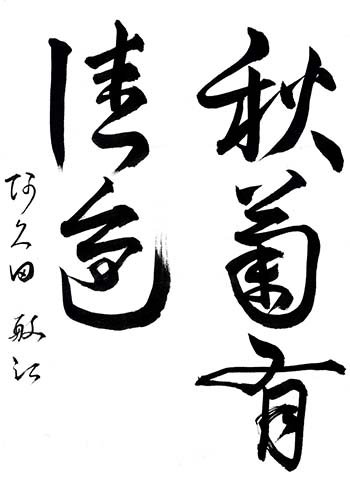 秋菊有
佳色
阿久田 敏江